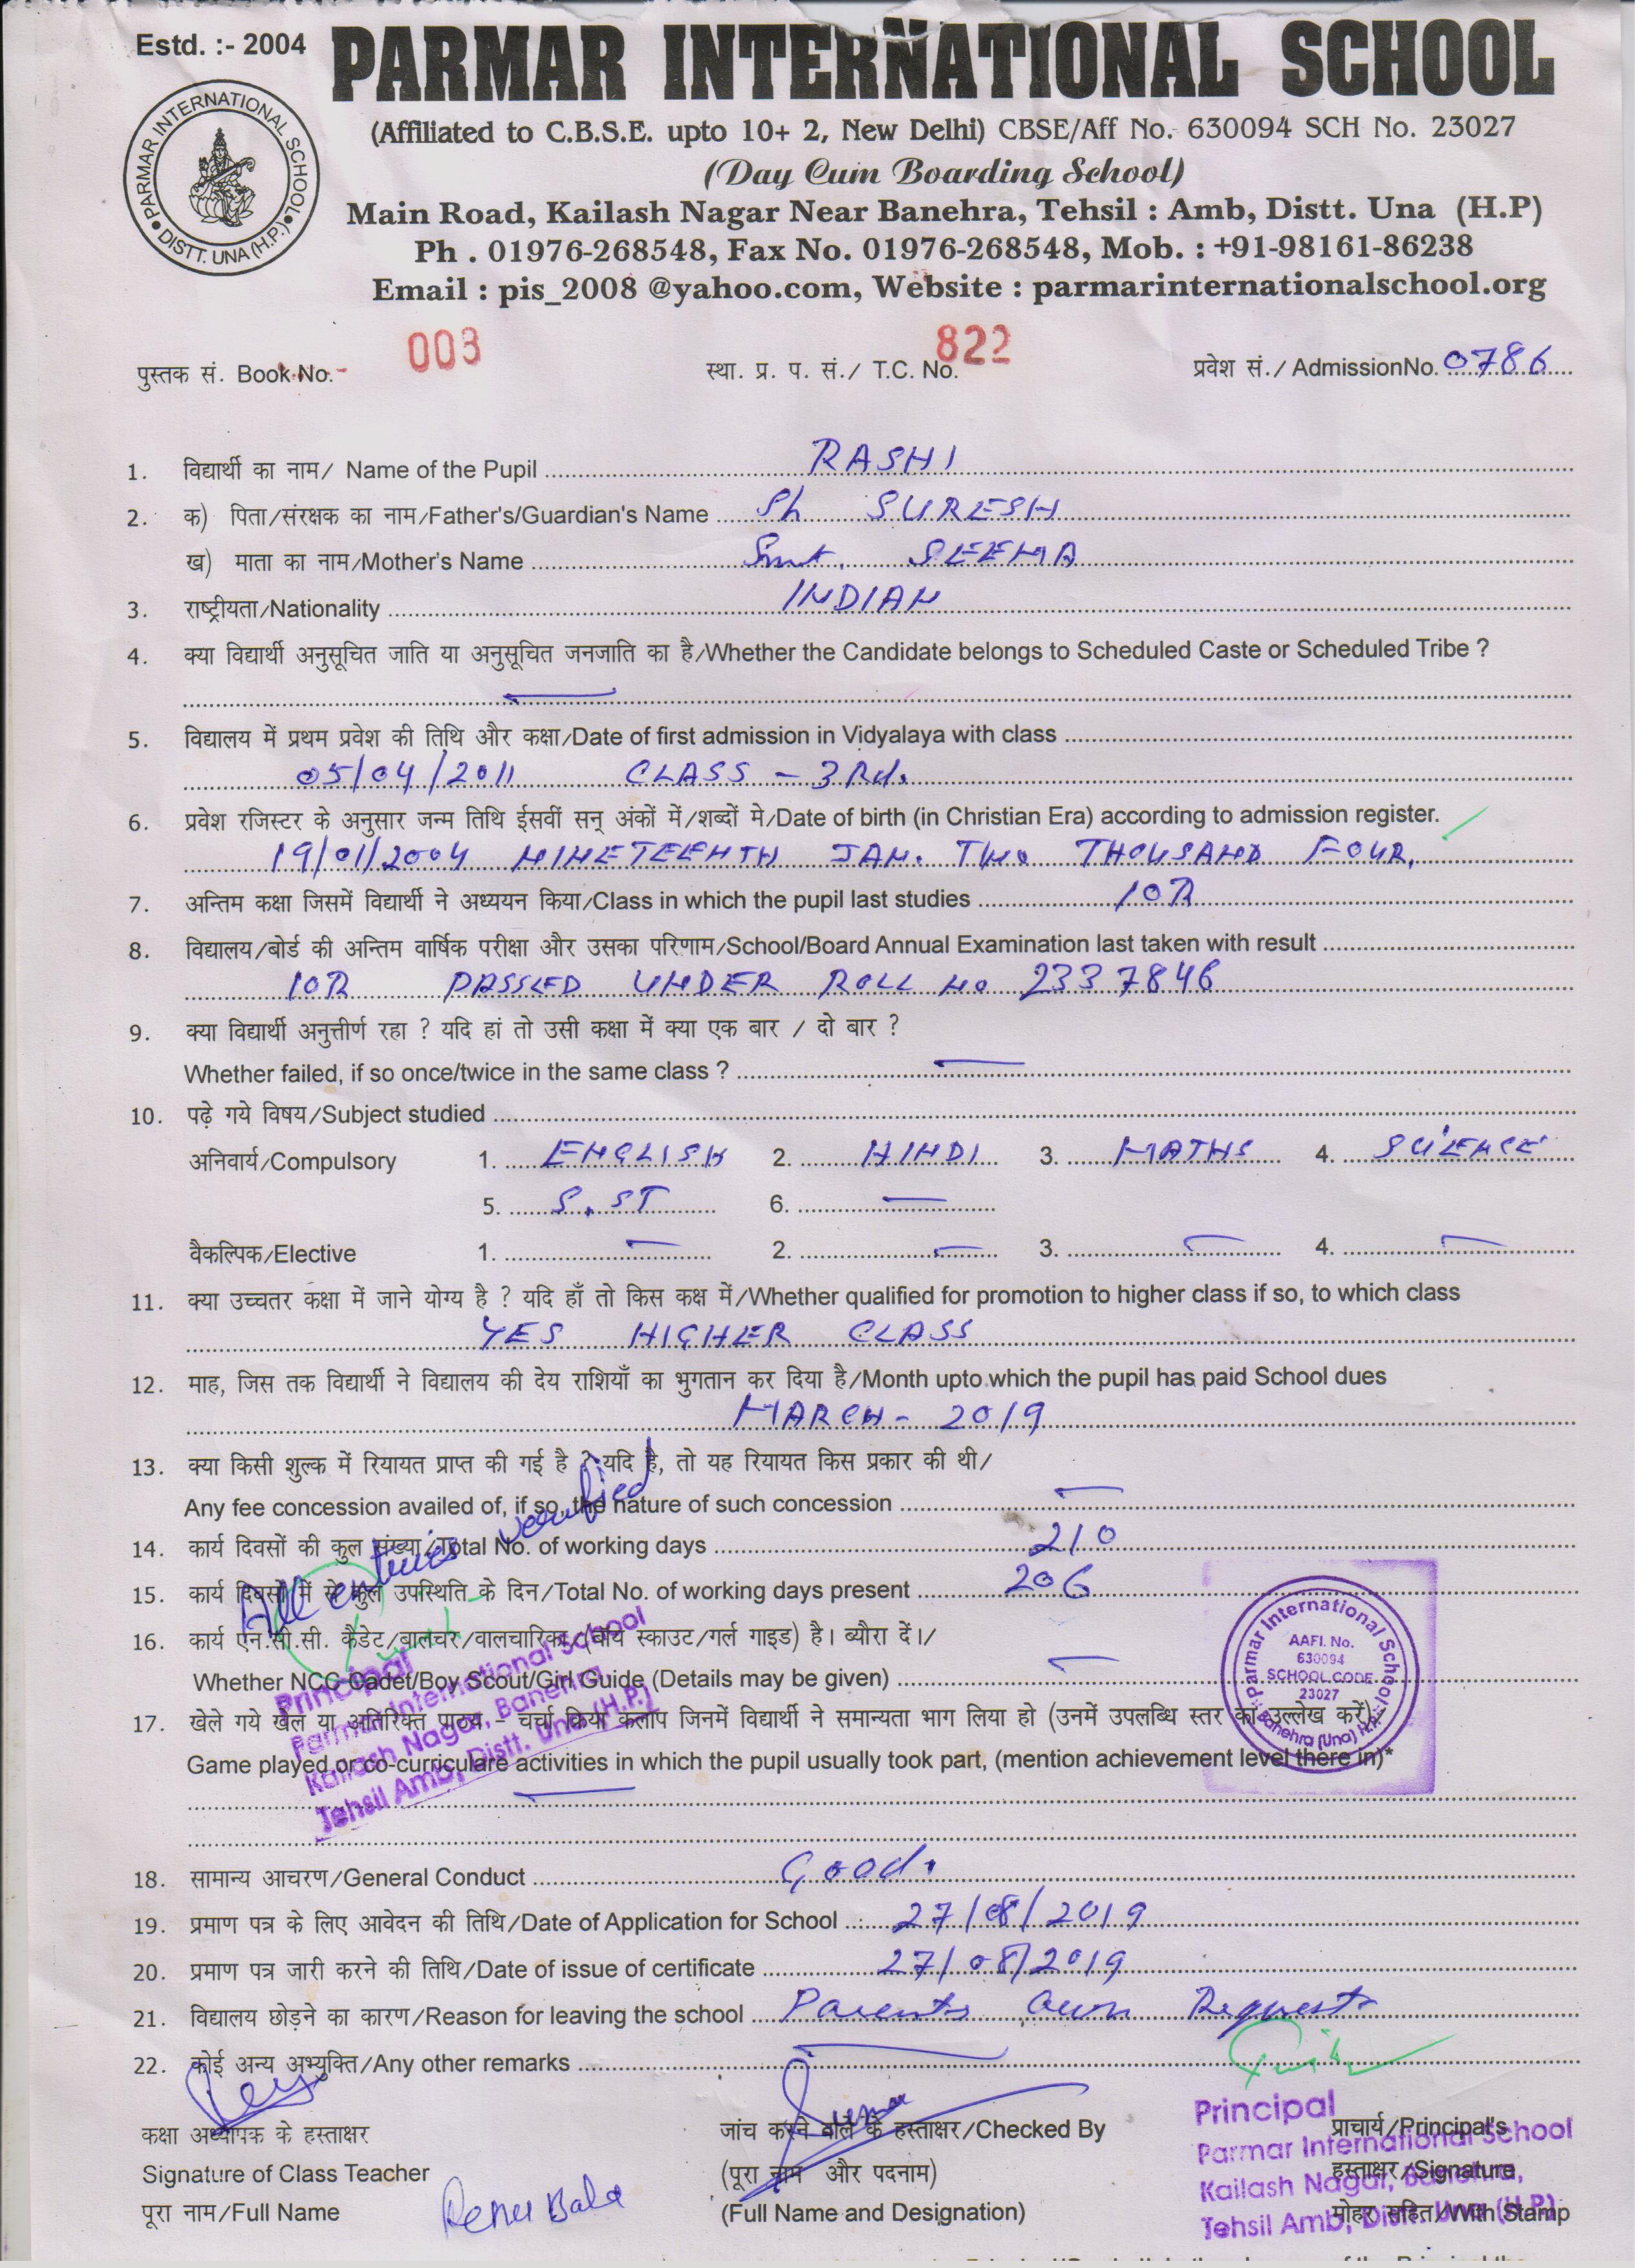 Estd. :- 2004
PARMAR INTERNATIONAL SCHOOL
(Affiliated to C.B.S.E. upto 10+ 2, New Delhi) CBSE/Aff No. 630094 SCH No. 23027
(Day Cum Boarding School)
Main Road, Kailash Nagar Near Banehra, Tehsil : Amb, Distt. Una (H.P)
Ph . 01976-268548, Fax No. 01976-268548, Mob. : +91-98161-86238
Email : pis_2008 @yahoo.com, Website : parmarinternationalschool.org
PARMAR INTERNATIONAL SCHOOL
DISTT. UNA (H.P.)
पुस्तक सं. Book No. - 003 स्था. प्र. प. सं./ T.C. No. 822 प्रवेश सं./ AdmissionNo. 0786
1. विद्यार्थी का नाम/ Name of the Pupil RASHI
2. क) पिता/संरक्षक का नाम/Father's/Guardian's Name Sh SURESH
ख) माता का नाम/Mother's Name Smt. SEEMA
3. राष्ट्रीयता/Nationality INDIAN
4. क्या विद्यार्थी अनुसूचित जाति या अनुसूचित जनजाति का है/Whether the Candidate belongs to Scheduled Caste or Scheduled Tribe ?
—
5. विद्यालय में प्रथम प्रवेश की तिथि और कक्षा/Date of first admission in Vidyalaya with class
05/04/2011 CLASS - 3Rd.
6. प्रवेश रजिस्टर के अनुसार जन्म तिथि ईसवीं सन् अंकों में/शब्दों मे/Date of birth (in Christian Era) according to admission register.
19/01/2004 NINETEENTH JAN. TWO THOUSAND FOUR.
7. अन्तिम कक्षा जिसमें विद्यार्थी ने अध्ययन किया/Class in which the pupil last studies
8. विद्यालय/बोर्ड की अन्तिम वार्षिक परीक्षा और उसका परिणाम/School/Board Annual Examination last taken with result
PASSED UNDER ROLL No 2337846
9. क्या विद्यार्थी अनुत्तीर्ण रहा ? यदि हां तो उसी कक्षा में क्या एक बार / दो बार ?
Whether failed, if so once/twice in the same class ? —
10. पढ़े गये विषय/Subject studied
अनिवार्य/Compulsory 1. ENGLISH 2. HINDI 3. MATHS 4. SCIENCE
5. S.ST 6. —
वैकल्पिक/Elective 1. — 2. — 3. — 4. —
11. क्या उच्चतर कक्षा में जाने योग्य है ? यदि हाँ तो किस कक्ष में/Whether qualified for promotion to higher class if so, to which class
YES HIGHER CLASS
12. माह, जिस तक विद्यार्थी ने विद्यालय की देय राशियाँ का भुगतान कर दिया है/Month upto which the pupil has paid School dues
MARCH - 2019
13. क्या किसी शुल्क में रियायत प्राप्त की गई है ? यदि है, तो यह रियायत किस प्रकार की थी/
Any fee concession availed of, if so, the nature of such concession —
All entries verified
14. कार्य दिवसों की कुल संख्या/Total No. of working days 210
15. कार्य दिवसों में से कुल उपस्थिति के दिन/Total No. of working days present 206
16. कार्य एन.सी.सी. कैडेट/बालचर/वालचारिका/(बॉय स्काउट/गर्ल गाइड) है। ब्यौरा दें।/
Whether NCC Cadet/Boy Scout/Girl Guide (Details may be given) —
Principal
Parmar International School
Kailash Nagar, Banehra,
Tehsil Amb, Distt. Una (H.P.)
Parmar International School
AAFI. No.
630094
SCHOOL CODE
23027
Banehra (Una) H.P.
17. खेले गये खेल या अतिरिक्त पाठ्य - चर्चा किया कलाप जिनमें विद्यार्थी ने समान्यता भाग लिया हो (उनमें उपलब्धि स्तर का उल्लेख करें)
Game played or co-curriculare activities in which the pupil usually took part, (mention achievement level there in)*
—
18. सामान्य आचरण/General Conduct Good.
19. प्रमाण पत्र के लिए आवेदन की तिथि/Date of Application for School 27/08/2019
20. प्रमाण पत्र जारी करने की तिथि/Date of issue of certificate 27/08/2019
21. विद्यालय छोड़ने का कारण/Reason for leaving the school Parents own Request
22. कोई अन्य अभ्युक्ति/Any other remarks —
कक्षा अध्यापक के हस्ताक्षर जांच करने वाले के हस्ताक्षर/Checked By प्राचार्य/Principal's
Signature of Class Teacher (पूरा नाम और पदनाम) हस्ताक्षर/Signature
पूरा नाम/Full Name Renu Bala (Full Name and Designation) मोहर सहित/With Stamp
Principal
Parmar International School
Kailash Nagar, Banehra,
Tehsil Amb, Distt. Una (H.P)